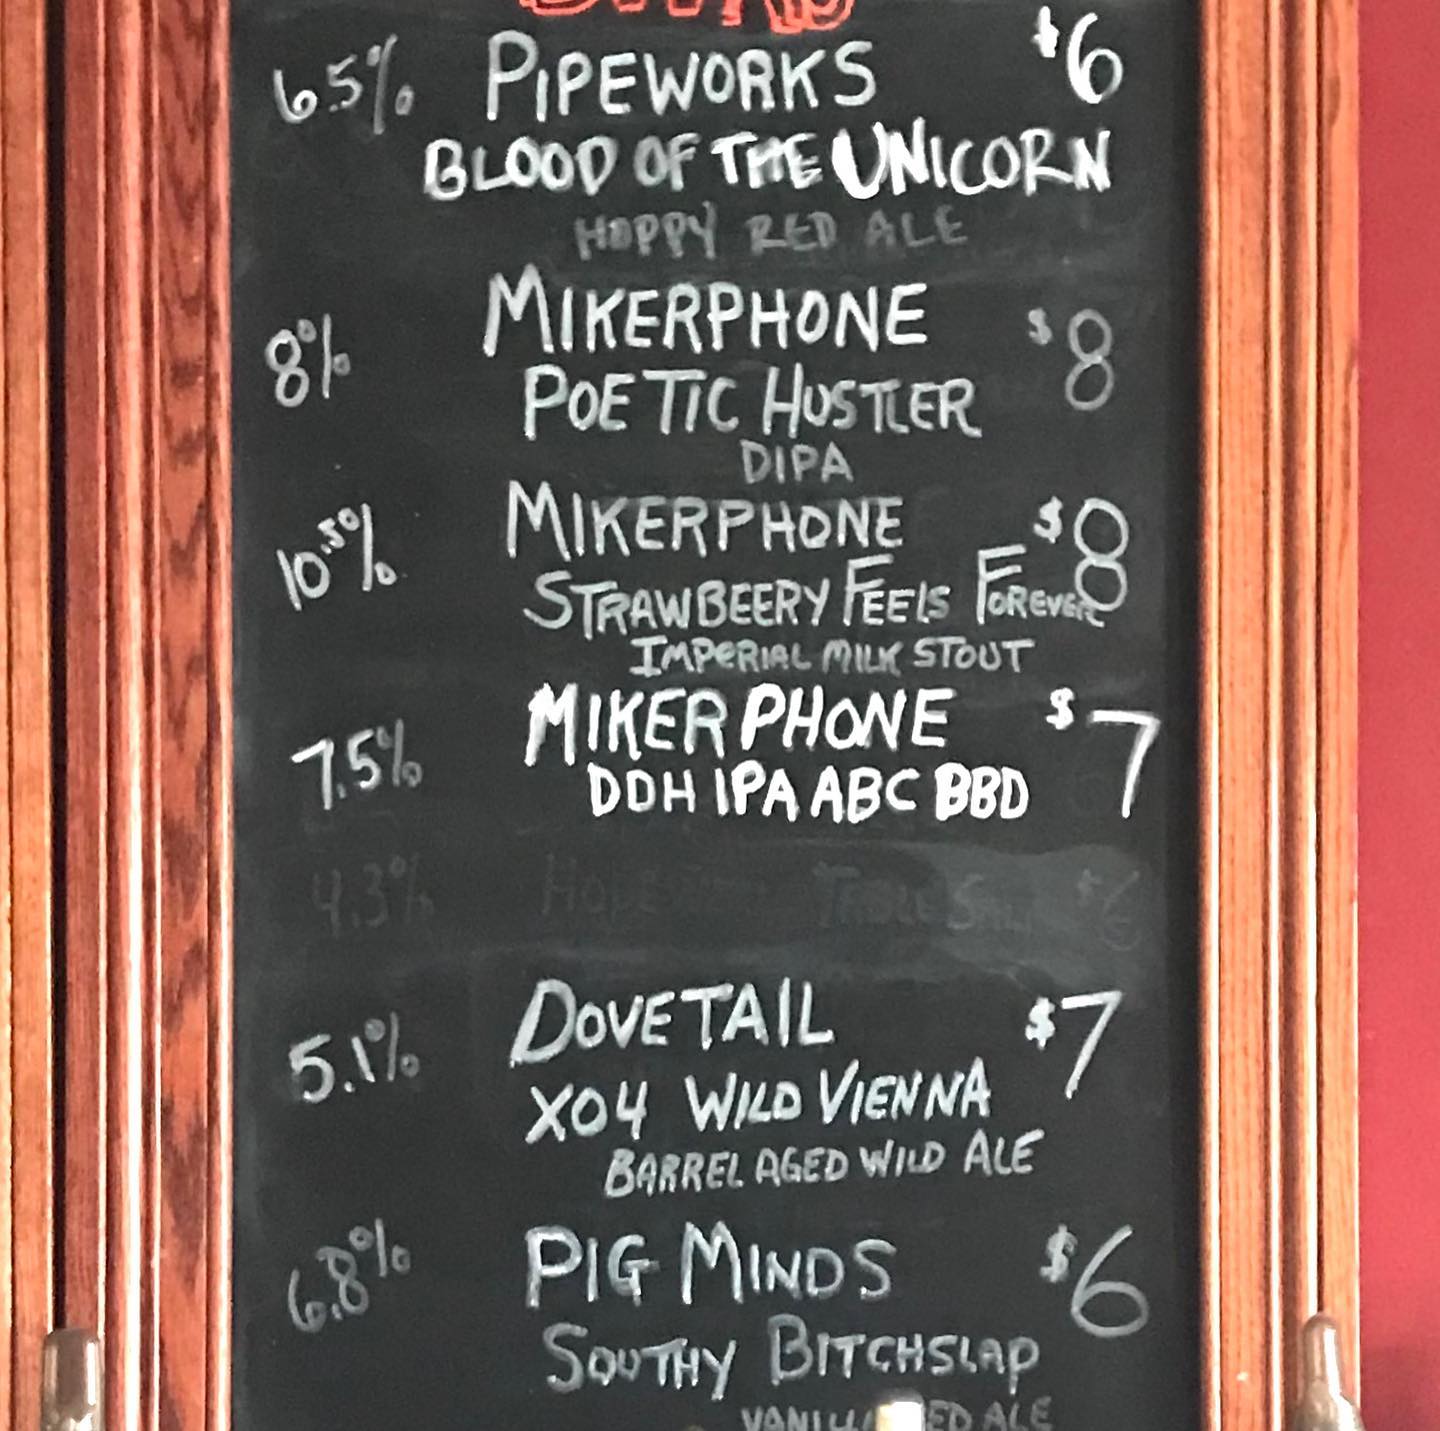 6.5% PIPEWORKS $6
BLOOD OF THE UNICORN
HOPPY RED ALE
8% MIKERPHONE $8
POETIC HUSTLER
DIPA
10.5% MIKERPHONE $8
STRAWBEERY FEELS FOREVER
IMPERIAL MILK STOUT
7.5% MIKERPHONE $7
DDH IPA ABC BBD
4.3% $6
5.1% DOVETAIL $7
XO4 WILD VIENNA
BARREL AGED WILD ALE
6.8% PIG MINDS $6
SOUTHY BITCHSLAP
ALE